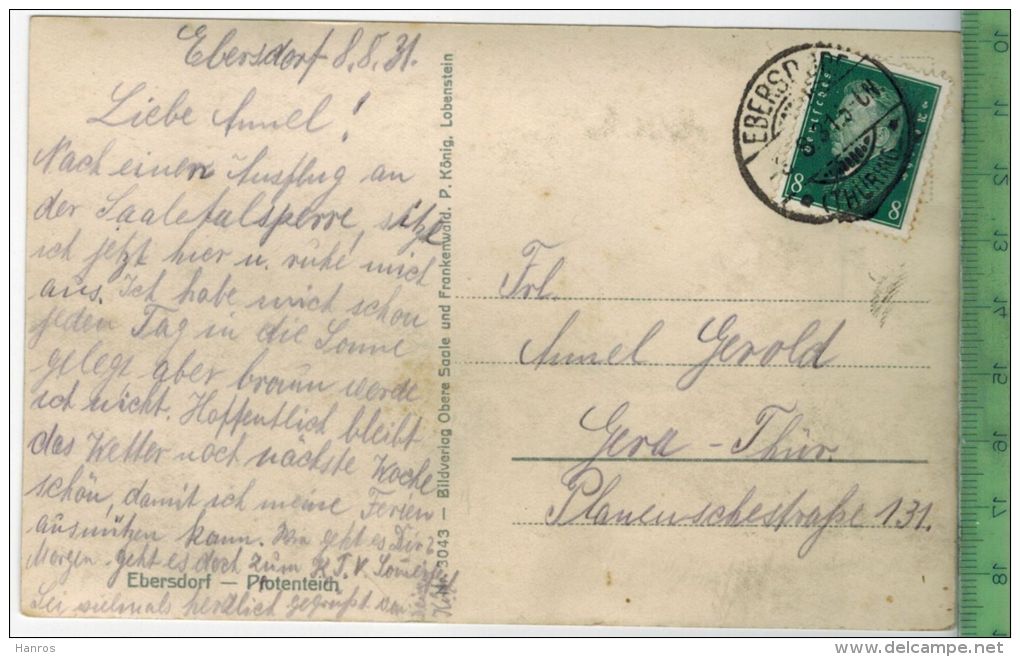 Ebersdorf 8.8.31.
Liebe Annel!
Nach einen Ausflug an
der Saaletalsperre, sitze
ich jetzt hier u. ruhe mich
aus. Ich habe mich schon
jeden Tag in die Sonne
gelegt aber braun werde
ich nicht. Hoffentlich bleibt
das Wetter noch nächste Woche
schön, damit ich meine Ferien
ausnützen kann. Wie geht es Dir?
Morgen geht es doch zum K.T.V.
Sei vielmals herzlich gegrüßt von
Ebersdorf — Pfotenteich
Nr. 3043 — Bildverlag Obere Saale und Frankenwald. P. König, Lobenstein
EBERSDORF
(THÜRING)
Deutsches Reich
8 8
Frl.
Annel Gerold
Gera - Thür.
Plauenschestraße 131.
10
11
12
13
14
15
16
17
18
Hanros
delcampe.net